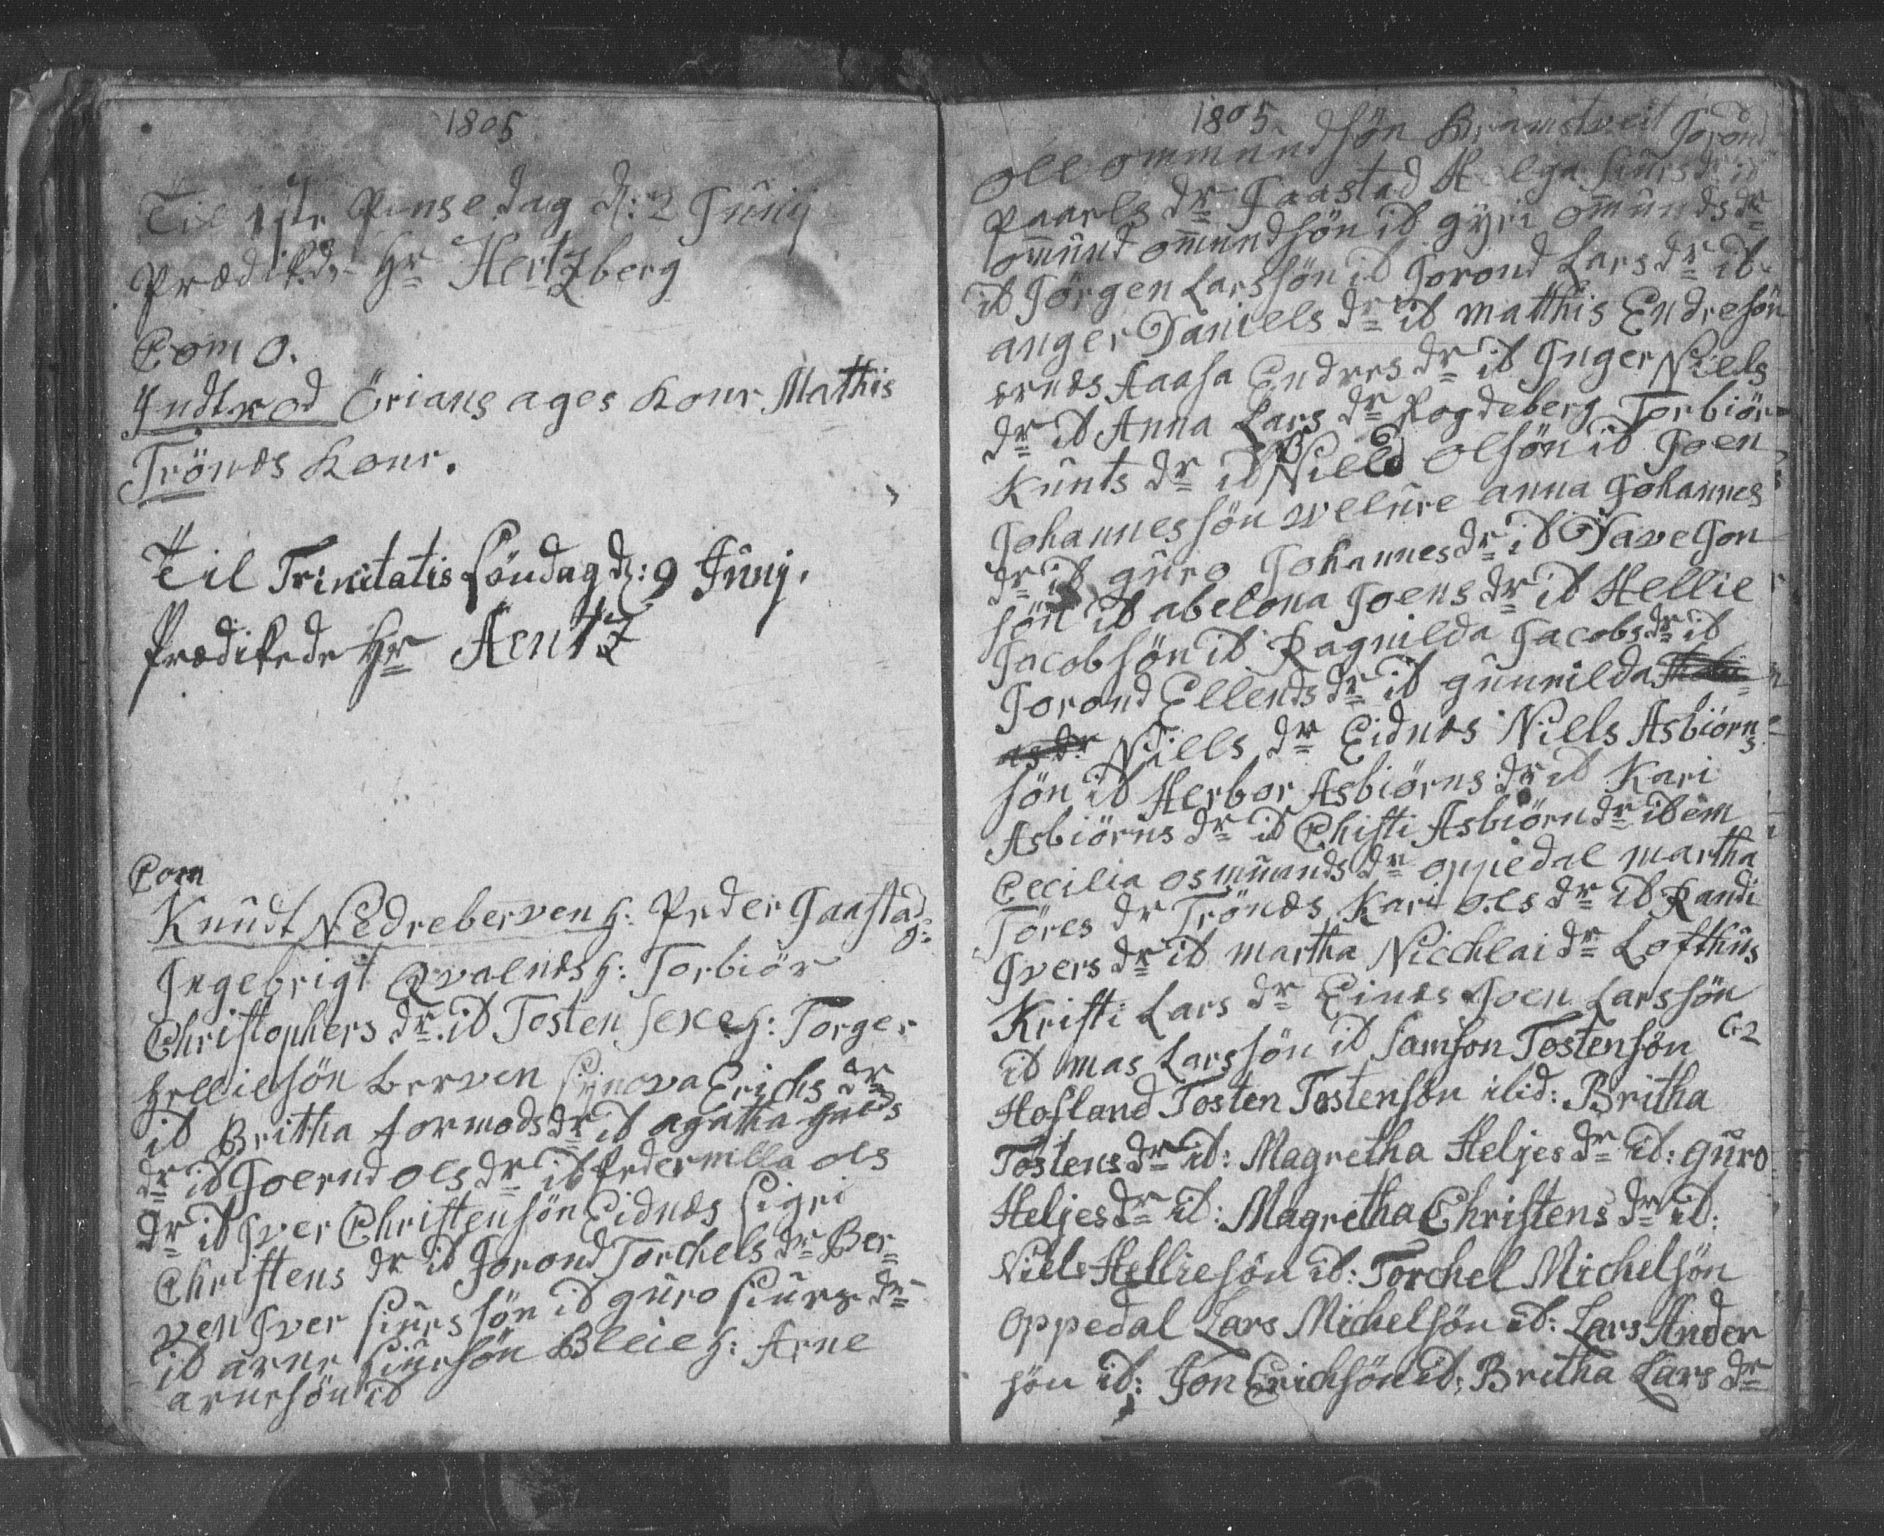 1805
Til 1ste Pinsedag d: 2 Junij
Prædikede Hr Hertzberg
Com 0.
Indlæd Örians ages Konr Mathis
Trönes Konr.
Til Trinitatis Söndag d: 9 Junij.
Prædikede Hr Aentz
Com
Knudt Nedreberven h: Peder Jaastad
g:
Ingebrigt Qvalnes h: Torbiör
Christophers dr. id Tosten sexe h: Torger
Helliesön berven Synova Erichs dr
id Britha tormods dr id agatha
dr id Joernd ols dr id Pedernilla ols
dr id Iver Christensön Eidnæs Sigri
Christens dr id Jorond Torchels dr Ber-
ven Iver siurssön id guro siurs dr
id arne siursön Bleie h: Arne
arnesön id
1805
Ole ommundsön Kvamstveit Jorond
Paarls dr Jaastad Helga siursdr id
omund omundsön id gyri omunds dr
id Jörgen Larssön id Jorond Lars dr id
anger Daniels dr id matthis Endresön
ernes Aaasa Endres dr id Inger Niels
dr id Anna Lars dr Rogdeberg Torbiör
Kunts dr id Niels olsön id Joen
Johannessön velure anna Johannes
dr id guro Johannesdr id Dave Jon
sön id abelona Joens dr id Hellie
Jacobsön id Ragnilda Jacobsdr id
Jorond Ellends dr id gunnilda
Niells dr Eidnes Niels Asbiörns
sön id Herbor Asbiörns dr id Kari
Asbiörns dr id Christi Asbiörn dr idem
Cecilia osmunds dr oppedal martha
Töres dr Trönes Kari ols dr id Randi
Ivers dr id martha Nicchlai dr Lofthus
Kristi Lars dr Eines Joen Larssön
id mas Larssön id Samson Tostensön 62
Hofland Tosten Tostensön ibid: Britha
Tostens dr id: Magretha Heljes dr id: guro
Heljes dr id: Magretha Christens dr id:
Niels Helliesön id: Torchel Michelsön
Oppedal Lars Michelsön id: Lars Ander
sön id: Jon Erichsön id: Britha Lars dr